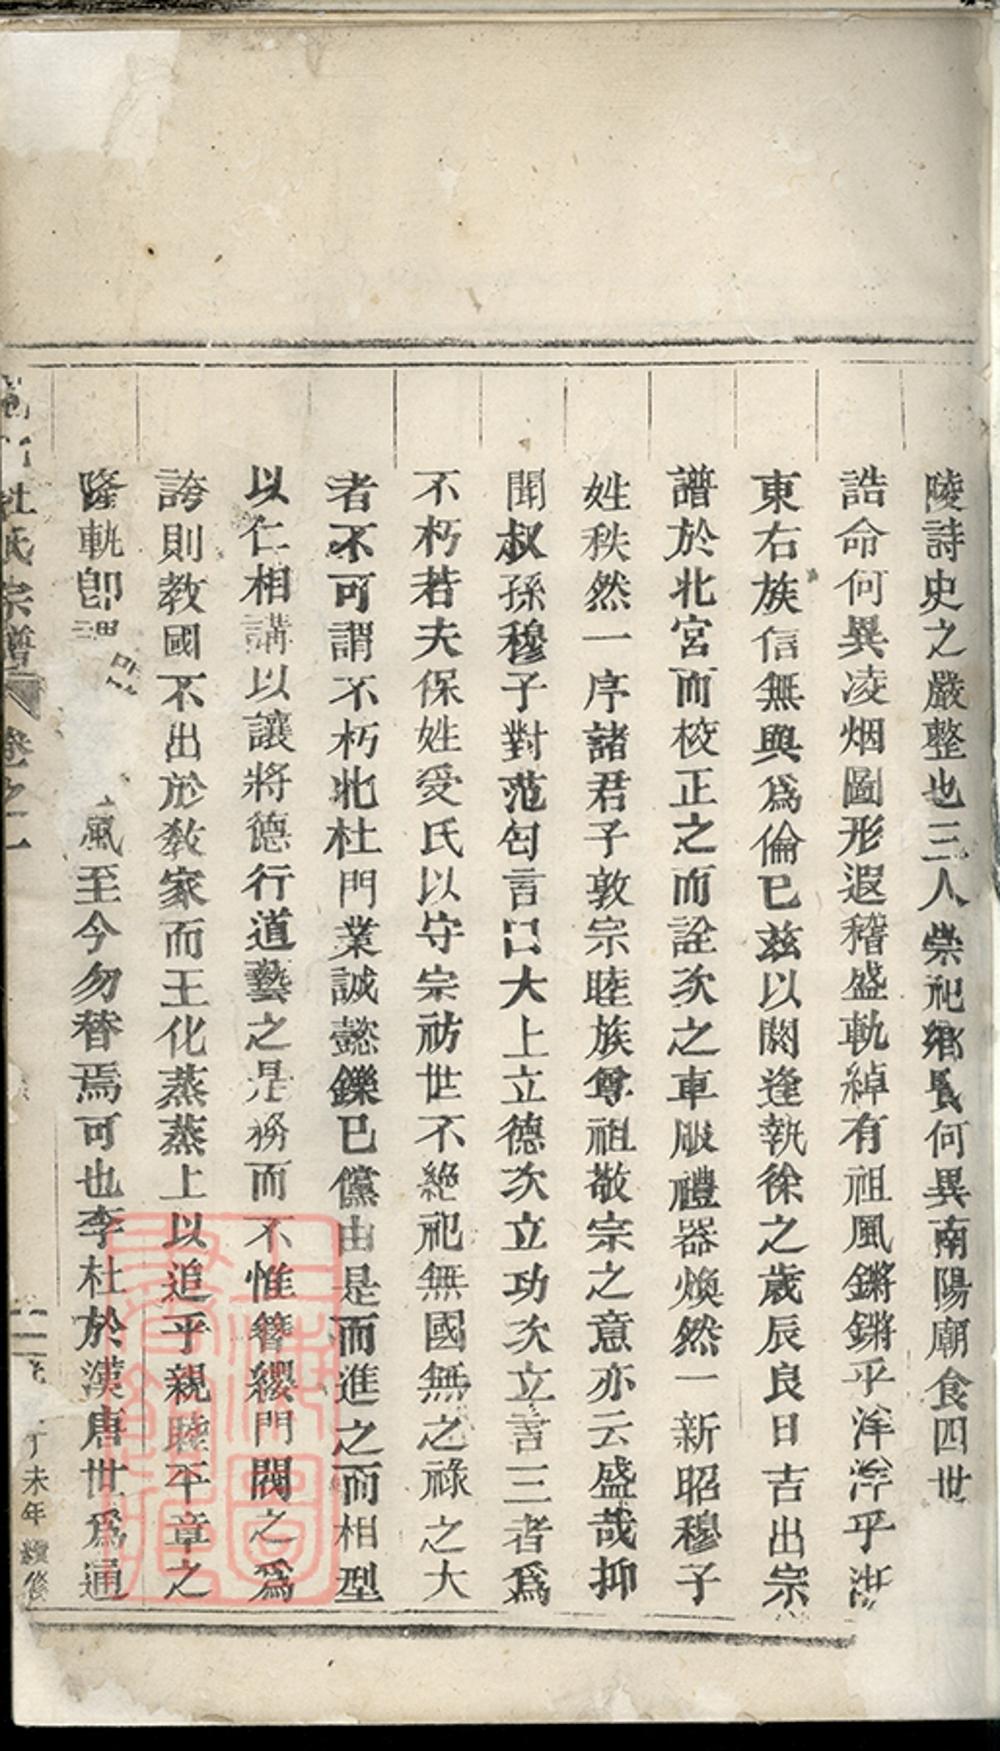 陵詩史之嚴整也三人崇祀鄉賢何異南陽廟食四世
誥命何異凌烟圖形遐稽盛軌綽有祖風鏘鏘乎洋洋乎浙
東右族信無與爲倫已兹以閼逢執徐之歲辰良日吉出宗
譜於北宮而校正之而詮次之車服禮器煥然一新昭穆子
姓秩然一序諸君子敦宗睦族尊祖敬宗之意亦云盛哉抑
聞叔孫穆子對范匄言曰大上立德次立功次立言三者爲
不朽若夫保姓受氏以守宗祊世不絶祀無國無之祿之大
者不可謂不朽北杜門業誠懿鑠已儻由是而進之而相型
以仁相講以讓將德行道藝之是務而不惟簪纓門閥之爲
誇則教國不出於教家而王化蒸蒸上以追乎親睦平章之
隆軌卽 風至今勿替焉可也李杜於漢唐世爲通
杜氏宗譜 卷之一
丁未年續修
上海圖書館藏